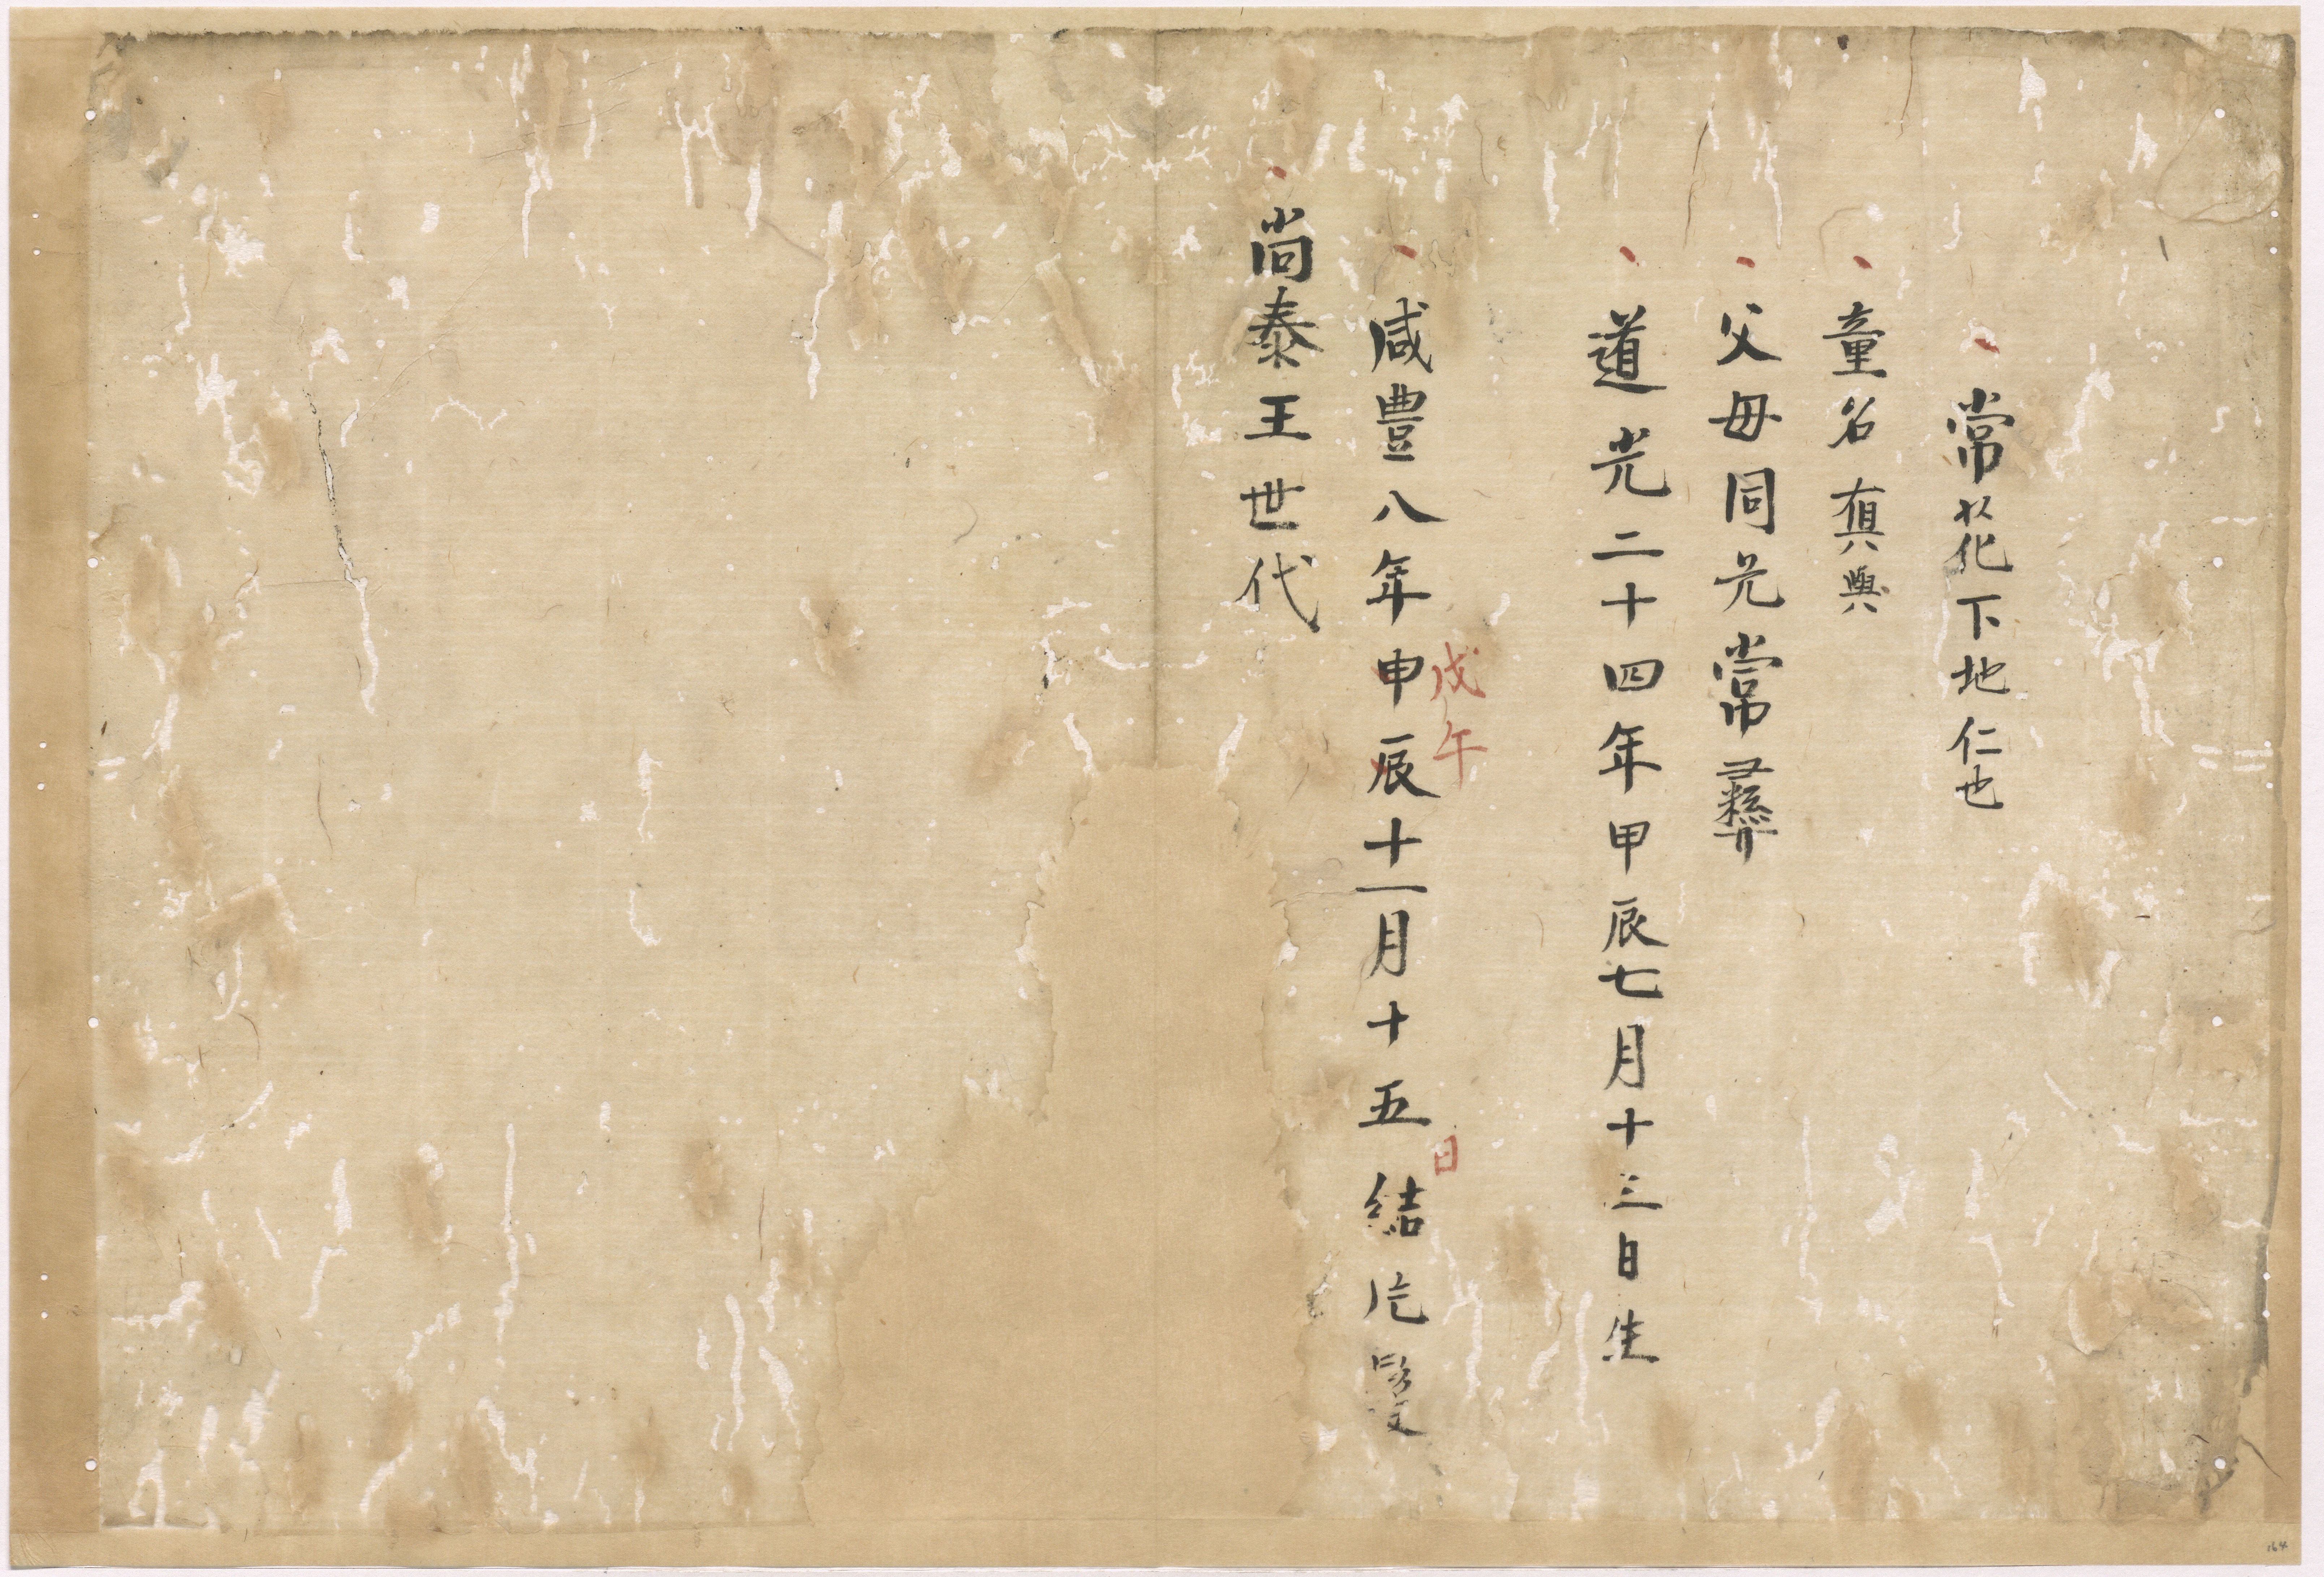 常花下地仁也
童名真與
父母同元常彝
道光二十四年甲辰七月十三日生
戊午 日
咸豊八年申辰十一月十五結片髪
尚泰王世代
164